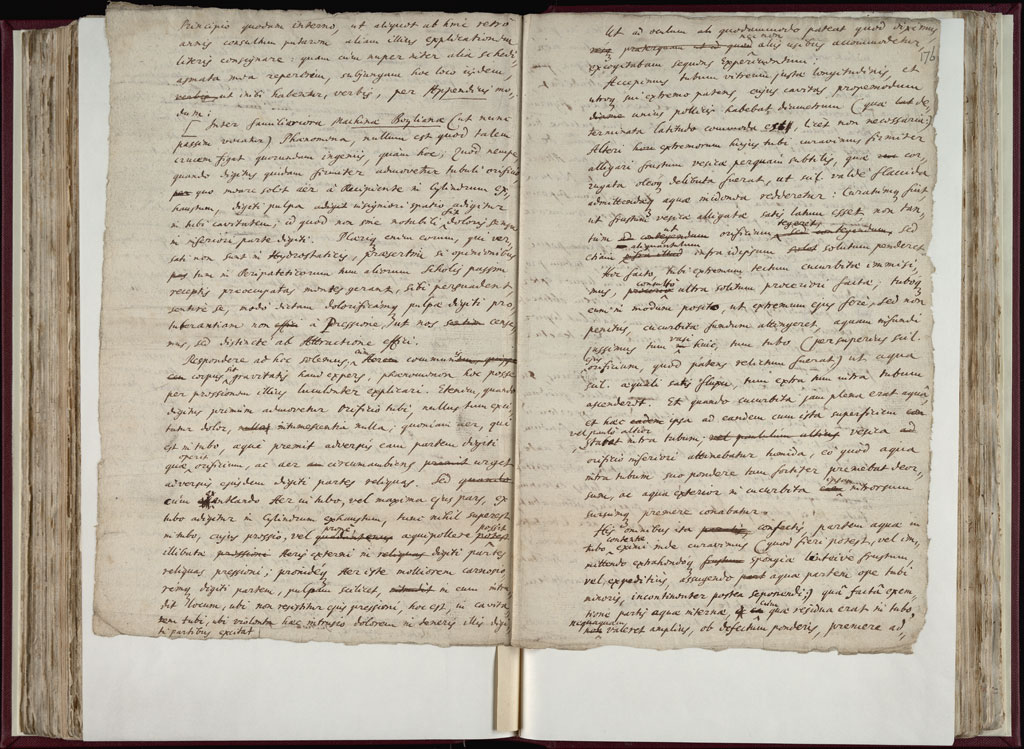 Principio quodam interno, ut aliquot ab hinc retro
annis consultum putarem aliam illius explicationem
literis consignare: quam cum nuper inter alia schedi
asmata mea repererim, subjungam hoc loco iisdem,
verbis ut inibi habentur, verbis, per Appendicis mo-
dum:
Inter familiariora Machinæ Boylianæ (ut nunc
passim vocatur) Phænomena, nullum est quod talem
crucem figet quorundam ingeniis, quàm hoc; Quod nempe,
quando digitus quidam firmiter admovetur tubuli orificio
per quo meare solet aër à Recipiente in Cylindrum ex-
haustum, digiti pulpa insigniori spatio adigitur
in tubi cavitatem, id quod non sine notabili fit doloris sensu
in inferiori parte digiti. Plerique enim eorum, qui ver-
sati non sunt in Hydrostaticis, præsertim si opinionibus
tum in Peripateticorum tum aliorum Scholis passim
receptis præoccupatas mentes gerant, sibi persuadent
sentire se, modò dictam dolorificamque pulpæ digiti pro
tuberantiam non effici à Pressione, ut nos cense
mus, sed distincte ab Attractione effici.
Respondere ad hoc solemus, communi
corpus sit gravitatis haud expers, phænomenon hoc posse
per pressionem illius luculenter explicari. Etenim, quando
digitus primùm admovetur Orificio tubi, nullus tum exci
tatur dolor, nulla intumescentia nulla; quoniam aër, qui
est in tubo, æquè premit adversùs eam partem digiti
quæ operit orificium, ac aer circumambiens premit urget
adversùs ejusdem digiti partes reliquas. Sed quando
cum exantlando Aer in tubo, vel maxima ejus pars, ex
tubo adigitur in Cylindrum exhaustum, tunc nihil superest
in tubo, cujus pressio, vel prope æquipollere possit
illibatæ pressioni Aeris externi in reliquas digiti partes
reliquas pressioni; proindeque Aer iste molliorem carnosio
remque digiti partem, pulpam scilicet, in eum intru
dit locum, ubi non renititur ejus pressioni, hoc est, in cavita
tem tubi, ubi violenta hæc intrusio dolorem in teneris illis digi
ti partibus excitat.
176
Ut ad oculum ab quodammodo pateat quod diximus
nec non
præterquam quod aliis usibus accommodetur,
excogitabam sequens Experimentum:
Accepimus tubum vitreum justæ longitudinis, et
utroque sui extremo patens, cujus cavitas propemodum
unius pollicis habebat diametrum (quæ licet de-
terminata latitudo commoda est, licet non necessaria:)
Alteri horum extremorum hujus tubi curavimus firmiter
alligari frustum vesicæ perquam subtilis, quæ cor-
rugata oleoque delibuta fuerat, ut scil. valdè flaccida
admittendæque aquæ inidonea redderetur: Curatumque fuit
ut frustum vesicæ alligatæ satis latum esset non tan-
tum ut orificium tegeret, sed contegendum, sed
aliquantulum
etiam infra ipsum solutum penderet.
Hoc facto, tubi extremum tectum cucurbitæ immisi,
mus, consultò ultra solitum proceriori factæ; tuboque
eum in modum posito, ut extremum ejus ferè, sed non
penitus, cucurbitæ fundum attingeret, aquam infundi
jussimus tum vasi huic, tum tubo (per superius scil.
ejus orificium, quod patens relictum fuerat) ut aqua
scil. æquali satis fluxu, tum extra tum intra tubum
ascenderet. Et quando cucurbita jam plena erat aquâ,
et hæc eadem ipsa ad eandem cum ista superficiem
vel paulò altior
stabat intra tubum; vel paululum altius vesica ad
orificio inferiori attinebatur tumida, eò quòd aqua
intra tubum suo pondere tam fortiter premebat deor,
sum, ac aqua exterior in cucurbita ipsam introrsum
sursumque premere conabatur.
Hisque omnibus ita confectis, partem aquæ in
tubo contentæ eximi inde curavimus (quod fieri potest, vel im,
mittendo extrahendoque spongiæ linteive frustum
vel, expeditius, assugendo aquæ partem ope tubi
minoris, incontinenter postea seponendi;) quâ factâ exem-
tione partis aquæ internæ, cùm quæ residua erat in tubo,
nequaquam
non valeret amplius, ob defectum ponderis, premere ad,